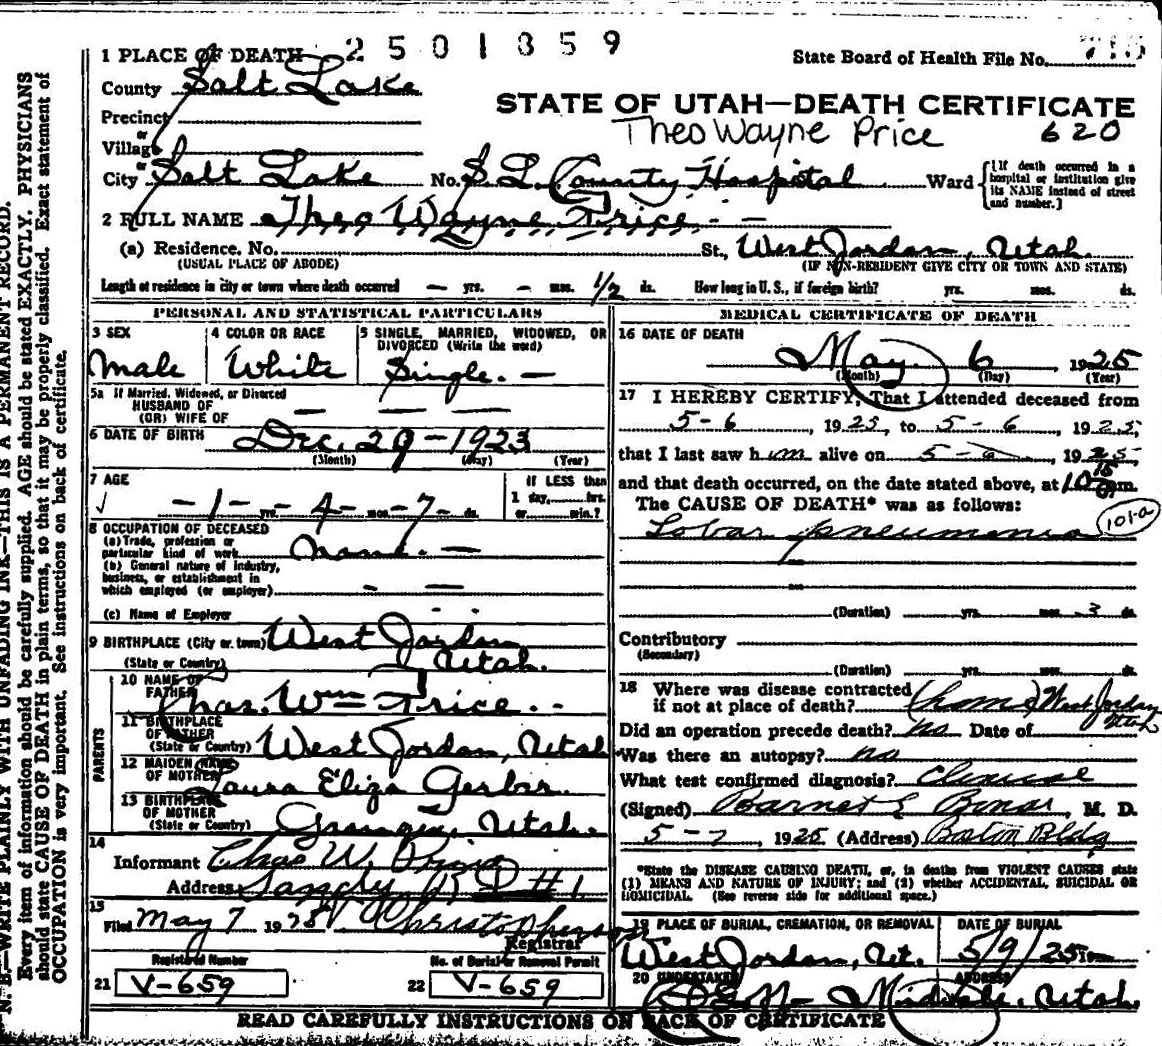 2501859
1 PLACE OF DEATH
State Board of Health File No. 715
County Salt Lake
STATE OF UTAH—DEATH CERTIFICATE
Precinct
Theo Wayne Price 620
or
Village
or
City Salt Lake No. S. L. County Hospital Ward
[If death occurred in a
hospital or institution give
its NAME instead of street
and number.]
2 FULL NAME Theo Wayne Price
(a) Residence, No. St., West Jordan, Utah
(USUAL PLACE OF ABODE) (IF NON-RESIDENT GIVE CITY OR TOWN AND STATE)
Length of residence in city or town where death occurred — yrs. — mos. 1/2 ds. How long in U. S., if foreign birth? yrs. mos. ds.
PERSONAL AND STATISTICAL PARTICULARS
3 SEX
Male
4 COLOR OR RACE
White
5 SINGLE, MARRIED, WIDOWED, OR
DIVORCED (Write the word)
Single. —
5a If Married, Widowed, or Divorced
HUSBAND OF
(OR) WIFE OF
6 DATE OF BIRTH Dec. 29—1923
(Month) (Day) (Year)
7 AGE
—1— yrs. —4— mos. —7— ds.
If LESS than
1 day, hrs.
or min.?
8 OCCUPATION OF DECEASED
(a) Trade, profession or
particular kind of work none. —
(b) General nature of industry,
business, or establishment in
which employed (or employer)
(c) Name of Employer
9 BIRTHPLACE (City or town) West Jordan
(State or Country) Utah.
PARENTS
10 NAME OF
FATHER Chas. Wm Price
11 BIRTHPLACE
OF FATHER
(State or Country) West Jordan, Utah
12 MAIDEN NAME
OF MOTHER Laura Eliza Gerber
13 BIRTHPLACE
OF MOTHER
(State or Country) Granger, Utah.
14
Informant Chas W. Price
Address Sandy R D #1.
15
Filed May 7 1925 Christopherson
Registrar
Registered Number
No. of Burial or Removal Permit
21 V-659
22 V-659
MEDICAL CERTIFICATE OF DEATH
16 DATE OF DEATH
May 6 1925
(Month) (Day) (Year)
17 I HEREBY CERTIFY, That I attended deceased from
5-6, 1925, to 5-6, 1925,
that I last saw him alive on 5-6, 1925,
and that death occurred, on the date stated above, at 10 15 m.
The CAUSE OF DEATH* was as follows:
Lobar pneumonia 101-a
(Duration) yrs. mos. 3 ds.
Contributory
(Secondary)
(Duration) yrs. mos. ds.
18 Where was disease contracted
if not at place of death? (home) West Jordan
Utah
Did an operation precede death? no Date of
Was there an autopsy? no
What test confirmed diagnosis? Clinical
(Signed) Barnet E. Bonar, M. D.
5-7, 1925 (Address) Boston Bldg
*State the DISEASE CAUSING DEATH, or, in deaths from VIOLENT CAUSES state
(1) MEANS AND NATURE OF INJURY; and (2) whether ACCIDENTAL, SUICIDAL OR
HOMICIDAL. (See reverse side for additional space.)
19 PLACE OF BURIAL, CREMATION, OR REMOVAL
West Jordan, Ut.
DATE OF BURIAL
5/9/25
20 UNDERTAKER
ADDRESS
Midvale, Utah.
READ CAREFULLY INSTRUCTIONS ON BACK OF CERTIFICATE
N. B.—WRITE PLAINLY WITH UNFADING INK—THIS IS A PERMANENT RECORD.
Every item of information should be carefully supplied. AGE should be stated EXACTLY. PHYSICIANS
should state CAUSE OF DEATH in plain terms, so that it may be properly classified. Exact statement of
OCCUPATION is very important. See instructions on back of certificate.